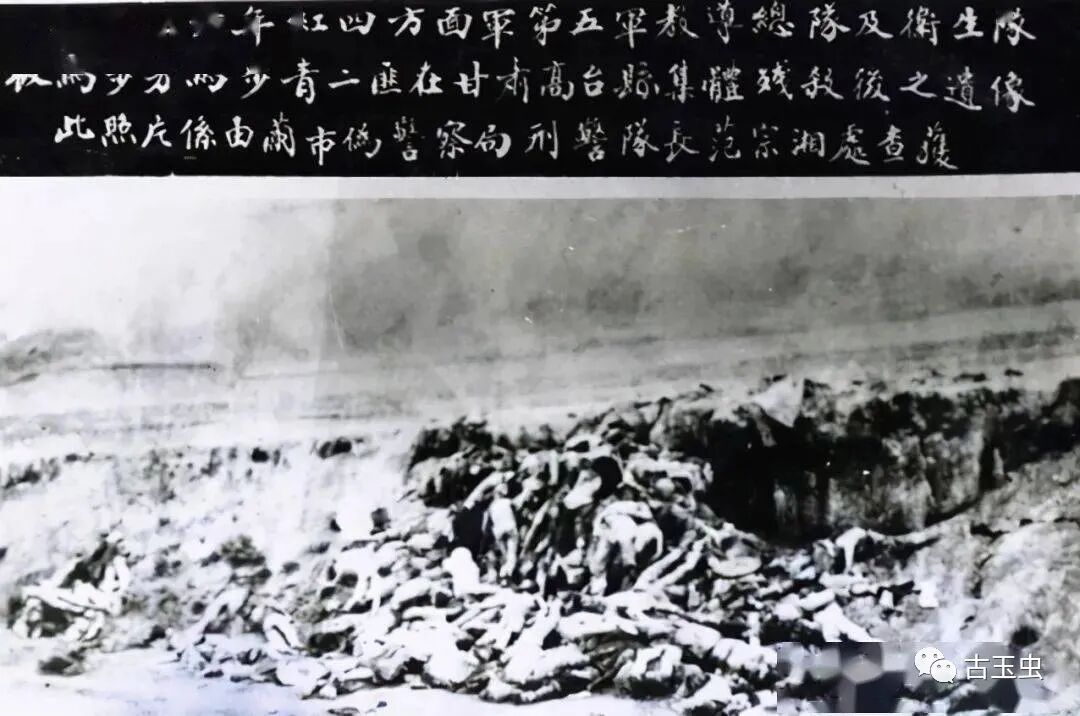 年红四方面軍第五軍教導總隊及衛生隊
被馬步芳馬步青二匪在甘肅高台縣集體殘殺後之遺像
此照片係由蘭市偽警察局刑警隊長范宗湘處查獲
古玉虫